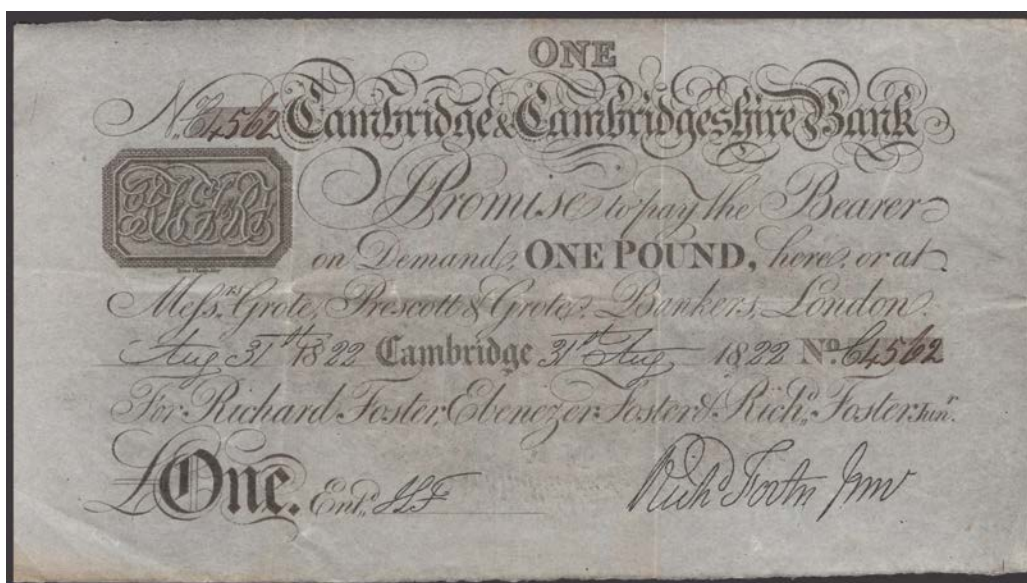 ONE
No. C4562 Cambridge & Cambridgeshire Bank
I Promise to pay the Bearer
on Demand, ONE POUND, here, or at
Messrs. Grote, Prescott & Grote, Bankers, London.
Aug 31st 1822 Cambridge 31st Aug 1822 No. C4562
For Richard Foster, Ebenezer Foster & Richd. Foster Junr.
£One. Entd.
Richd Foster Junr